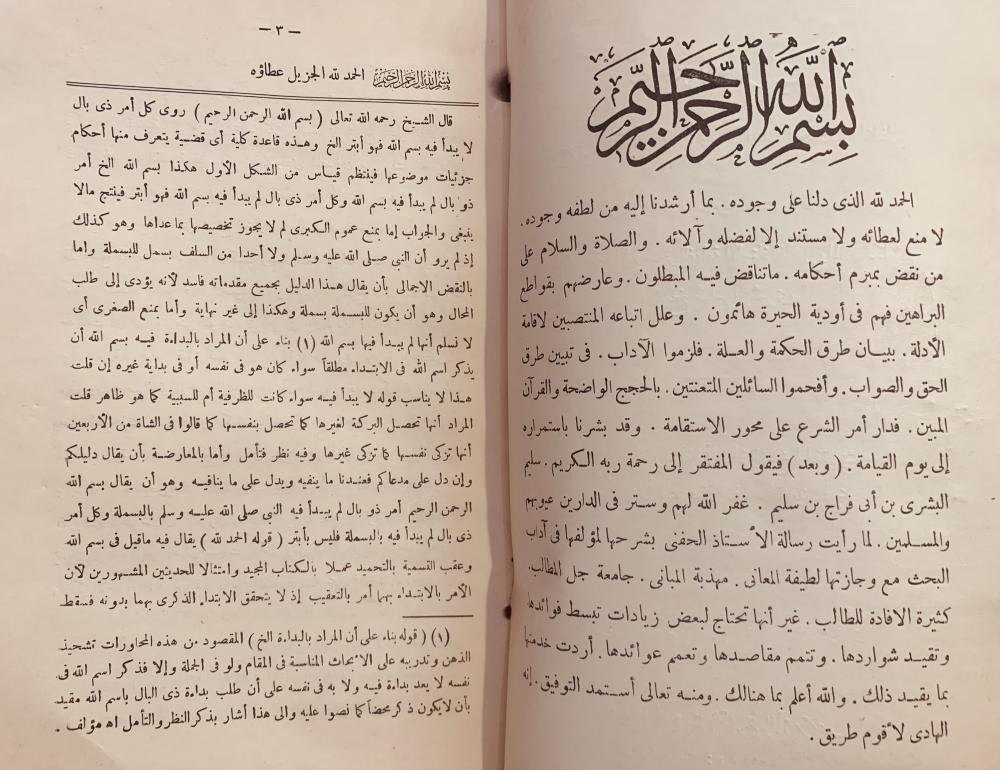 بسم الله الرحمن الرحيم
الحمد لله الذى دلنا على وجوده . بما أرشدنا إليه من لطفه وجوده .
لا منع لعطائه ولا مستند إلا لفضله وآلائه . والصلاة والسلام على
من نقض بمبرم أحكامه . ماتناقض فيه المبطلون . وعارضهم بقواطع
البراهين فهم فى أودية الحيرة هائمون . وعلل اتباعه المنتصبين لاقامة
الأدلة . ببيان طرق الحكمة والعلة . فلزموا الآداب . فى تبيين طرق
الحق والصواب . وأفحموا السائلين المتعنتين . بالحجج الواضحة والقرآن
المبين . فدار أمر الشرع على محور الاستقامة . وقد بشرنا باستمراره
إلى يوم القيامة . ( وبعد ) فيقول المفتقر إلى رحمة ربه الكريم . سليم
البشرى بن أبى فراج بن سليم . غفر الله لهم وستر فى الدارين عيوبهم
والمسلمين . لما رأيت رسالة الأستاذ الحفنى بشرحها لمؤلفها فى آداب
البحث مع وجازتها لطيفة المعانى . مهذبة المبانى . جامعة جل المطالب .
كثيرة الافادة للطالب . غير أنها تحتاج لبعض زيادات تبسط فوائدها
وتقيد شواردها . وتتمم مقاصدها وتعميم عوائدها . أردت خدمتها
بما يقيد ذلك . والله أعلم بما هنالك . ومنه تعالى أستمد التوفيق . إنه
الهادى لأقوم طريق .
— ٣ —
بسم الله الرحمن الرحيم الحمد لله الجزيل عطاؤه
قال الشيخ رحمه الله تعالى ( بسم الله الرحمن الرحيم ) روى كل أمر ذى بال
لا يبدأ فيه بسم الله فهو أبتر الخ وهذه قاعدة كلية أى قضية يتعرف منها أحكام
جزئيات موضوعها فينتظم قياس من الشكل الأول هكذا بسم الله الخ أمر
ذو بال لم يبدأ فيه بسم الله وكل أمر ذى بال لم يبدأ فيه بسم الله فهو أبتر فينتج مالا
ينبغى والجواب إما بمنع عموم الكبرى لم لا يجوز تخصيصها بماعداها وهو كذلك
إذ لم يرو أن النبى صلى الله عليه وسلم ولا أحدا من السلف بسمل للبسملة واما
بالنقض الاجمالى بأن يقال هذا الدليل بجميع مقدماته فاسد لأنه يؤدى إلى طلب
المحال وهو أن يكون للبسملة بسملة وهكذا إلى غير نهاية وأما بمنع الصغرى أى
لا نسلم أنها لم يبدأ فيها بسم الله (١) بناء على أن المراد بالبداءة فيه بسم الله أن
يذكر اسم الله فى الابتداء مطلقاً سواء كان هو فى نفسه أو فى بداية غيره إن قلت
هذا لا يناسب قوله لا يبدأ فيه سواء كانت للظرفية أم للسببية كما هو ظاهر قلت
المراد أنها تحصل البركة لغيرها كما تحصل بنفسها كما قالوا فى الشاة من الأربعين
أنها تزكى نفسها كما تزكى غيرها وفيه نظر فتأمل وأما بالمعارضة بأن يقال دليلكم
وإن دل على مدعاكم فعندنا ما ينفيه ويدل على ما ينافيه وهو أن يقال بسم الله
الرحمن الرحيم أمر ذو بال لم يبدأ فيه النبى صلى الله عليه وسلم بالبسملة وكل أمر
ذى بال لم يبدأ فيه بالبسملة فليس بأبتر ( قوله الحمد لله ) يقال فيه ماقيل فى بسم الله
وعقب القسمية بالتحميد عملا بالكتاب المجيد وامتثالا للحديثين المشهورين لأن
الأمر بالابتداء بهما أمر بالتعقيب إذ لا يتحقق الابتداء الذكرى بهما بدونه فسقط
(١) ( قوله بناء على أن المراد بالبداءة الخ ) المقصود من هذه المحاورات تشحيذ
الذهن وتدريبه على الابحاث المناسبة فى المقام ولو فى الجملة وإلا فذكر اسم الله فى
نفسه لا يعد بداءة فيه ولا به فى نفسه على أن طلب بداءة ذى البال باسم الله مقيد
بأن لايكون ذكر محضاً كما نصوا عليه والى هذا أشار بذكر النظر والتأمل اه مؤلف .